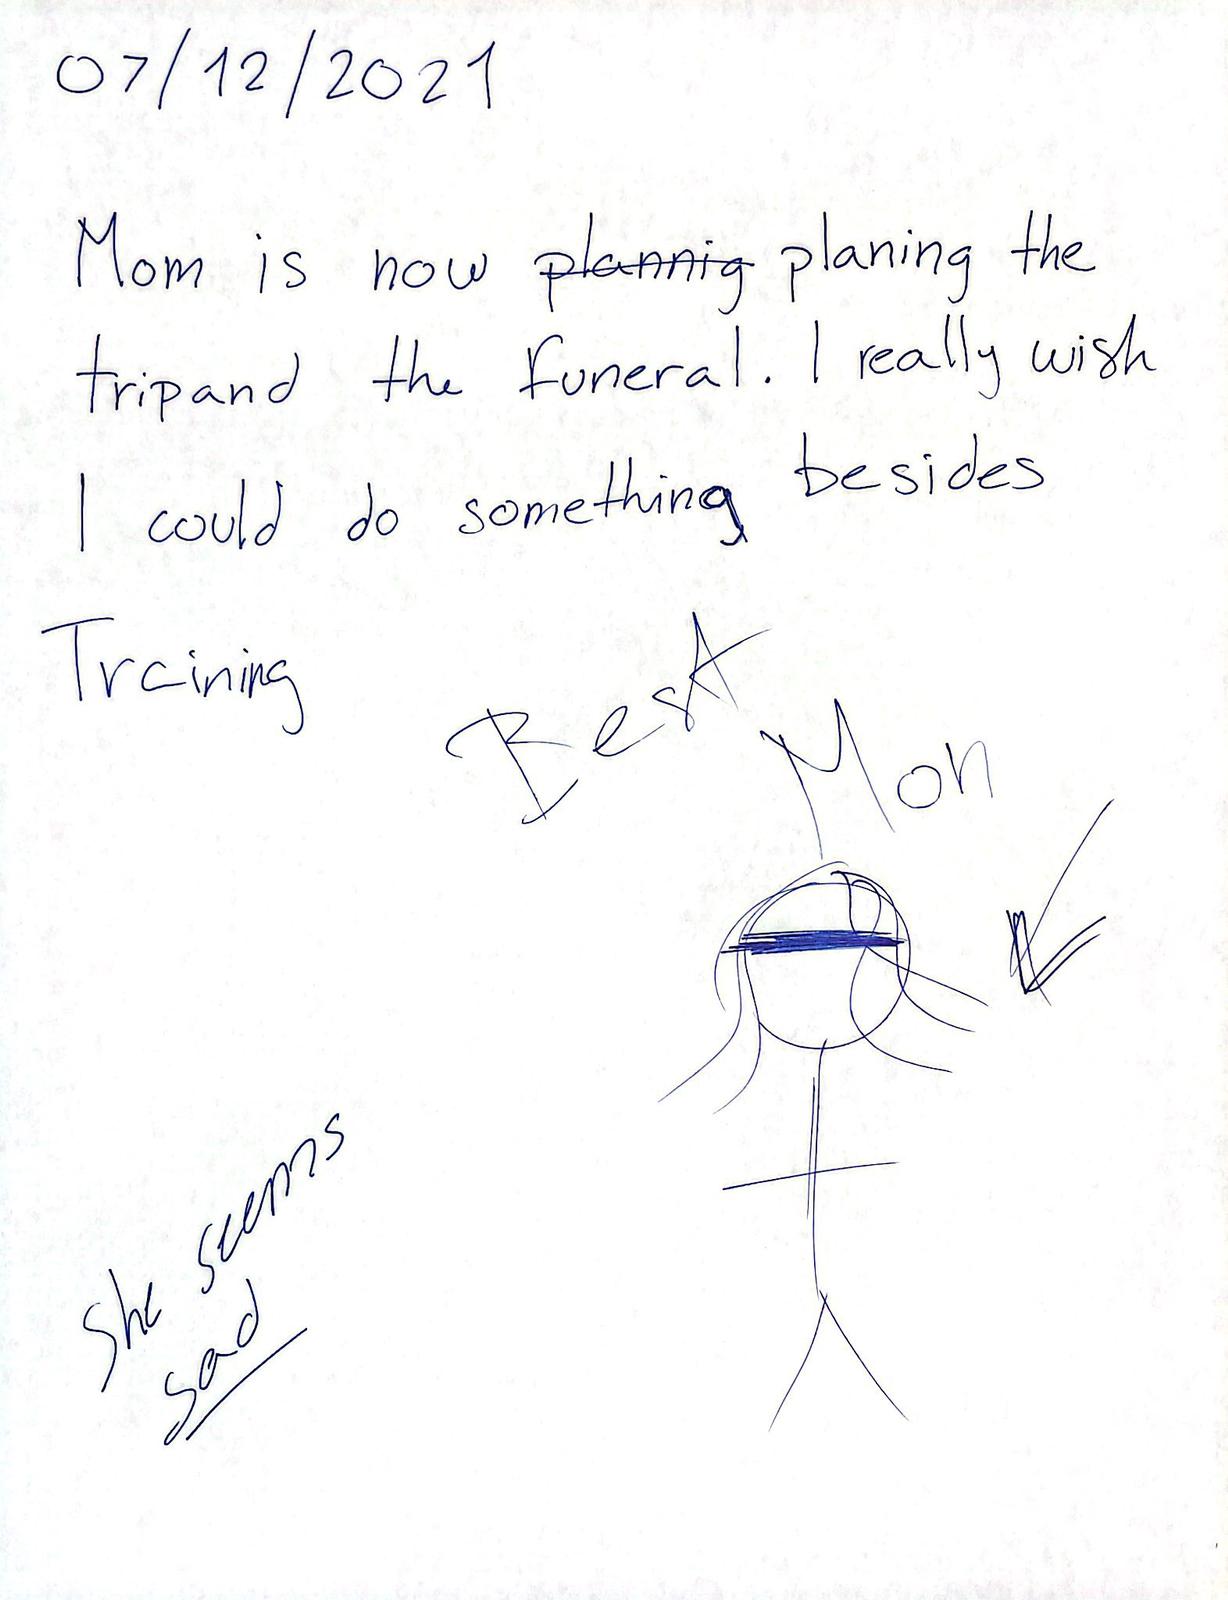 07/12/2021
Mom is now plannig planing the
tripand the funeral. I really wish
I could do something besides
Training
Best
Mon
She seems
sad